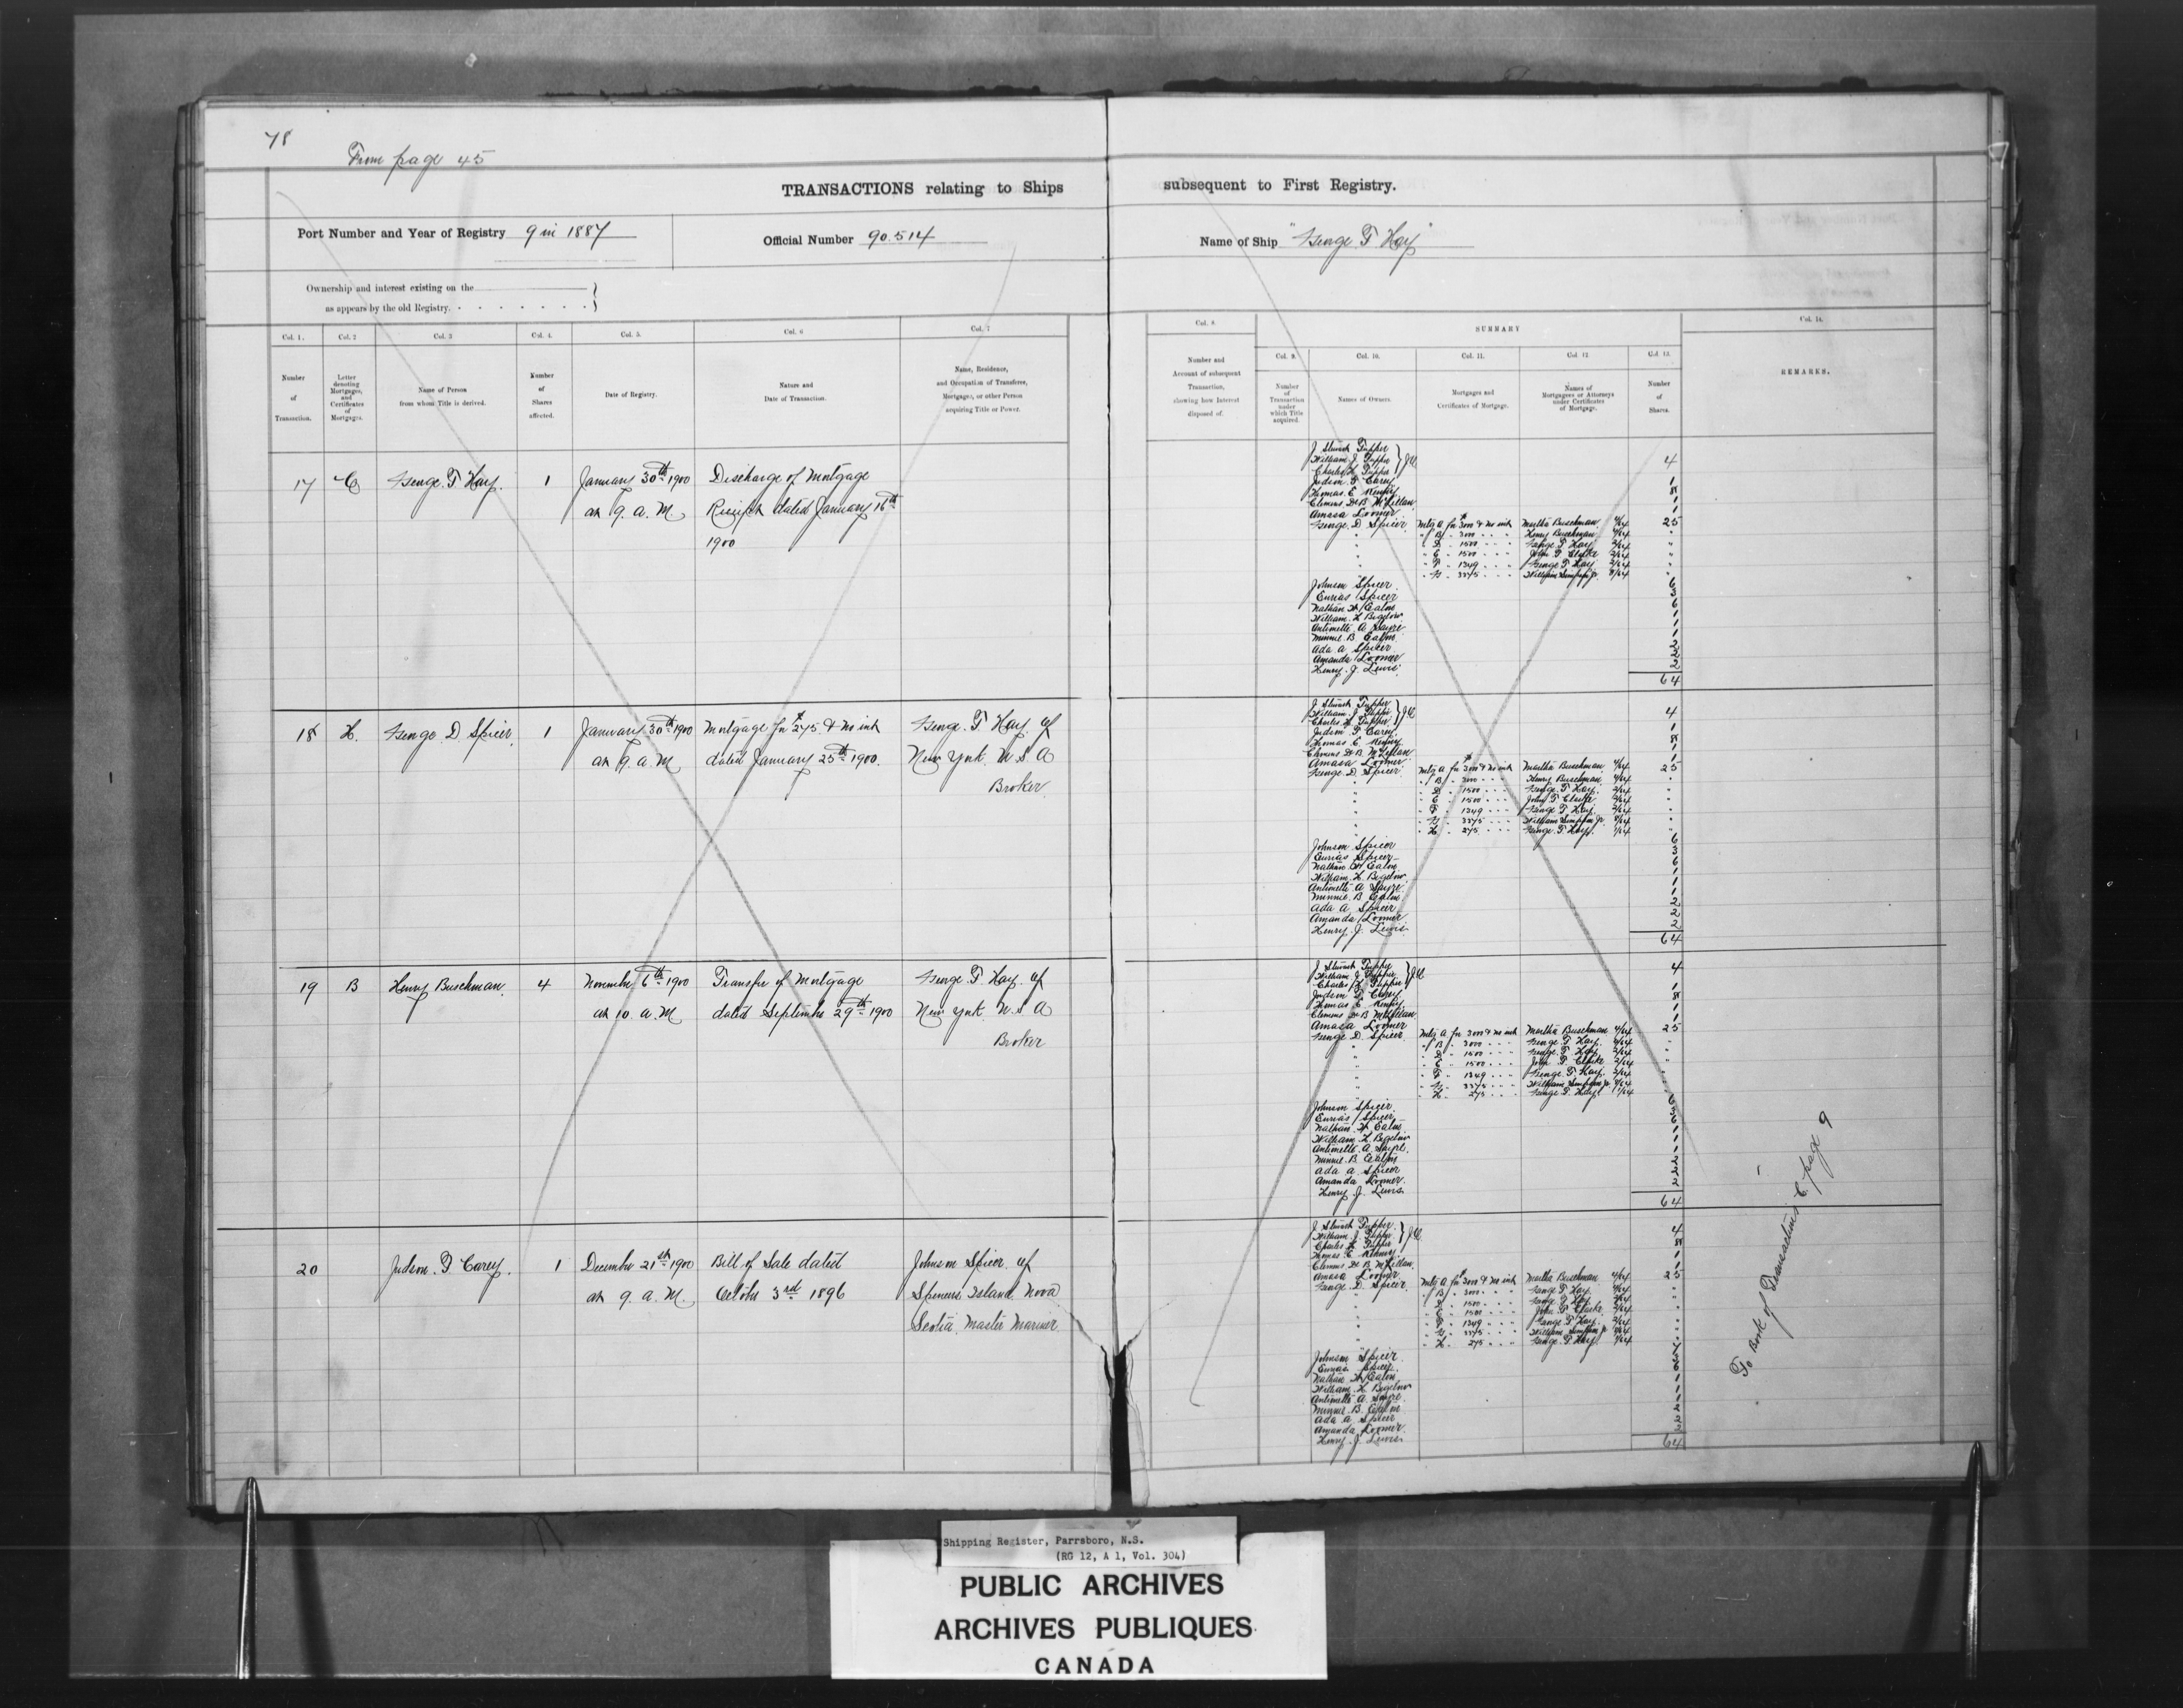 78
From page 45
TRANSACTIONS relating to Ships subsequent to First Registry.
Port Number and Year of Registry 9 in 1887
Official Number 90.514
Name of Ship "George T Hay"
Ownership and interest existing on the
as appears by the old Registry.
Col. 1.
Col. 2
Col. 3
Col. 4.
Col. 5.
Col. 6
Col. 7
Number of Transaction.
Letter denoting Mortgages, and Certificates of Mortgages.
Name of Person from whom Title is derived.
Number of Shares affected.
Date of Registry.
Nature and Date of Transaction.
Name, Residence, and Occupation of Transferee, Mortgagee, or other Person acquiring Title or Power.
Col. 8.
SUMMARY
Col. 9.
Col. 10.
Col. 11.
Col. 12
Col. 13.
Col. 14.
Number and Account of subsequent Transaction, showing how Interest disposed of.
Number of Transaction under which Title acquired.
Names of Owners.
Mortgages and Certificates of Mortgage.
Names of Mortgagees or Attorneys under Certificates of Mortgage.
Number of Shares.
REMARKS.
17 George. T Hay. 1 January 30th 1900 Discharge of Mortgage
at 9. a. M. Receipt dated January 16th
1900
J Stewart Tupper
William J. Tupper
Charles H. Tupper } 4
Judson T Carey 1
Thomas E Kenny 8
Clemens De B McLellan 1
Amasa Loomer 1
George D Spicer Mtg A for $3000 & no int Martha Buschman 4/64 25
" B " 3000 " " " Henry Buschman 4/64 "
" D " 1500 " " " George T Hay 2/64 "
" E " 1500 " " " John T Clarke 2/64 "
" F " 1349 " " " George T Hay 2/64 "
" G " 3375 " " " William Simpson Jr. "
Johnson Spicer 6
Eurias Spicer 3
Nathan W Eaton 6
William H Bigelow 1
Antinette A Sayre 1
Minnie B Eaton 1
Ada A Spicer 2
Amanda Loomer 2
Henry. J. Lewis 2
64
18 H. George D Spicer. 1 January 30th 1900 Mortgage for $275. & no int George. T Hay of
at 9. a. M dated January 25th 1900. New York. U. S. A
Broker.
J Stewart Tupper
William J Tupper
Charles H Tupper } 4
Judson T Carey 1
Thomas E Kenny 8
Clemens De B. McLellan 1
Amasa Loomer 1
George D Spicer Mtg A for $3000 & no int Martha Buschman 4/64 25
" B " 3000 " " " Henry Buschman 4/64 "
" D " 1500 " " " George T Hay. 2/64 "
" E " 1500 " " " John T Clarke 2/64 "
" F " 1349 " " " George T Hay. 2/64 "
" G " 3375 " " " William Simpson Jr "
" H " 275 " " " George T Hay. 1/64 "
Johnson Spicer 6
Eurias Spicer 3
Nathan W Eaton 6
William H Bigelow. 1
Antinette A Sayre 1
Minnie B Eaton 1
Ada A Spicer 2
Amanda Loomer 2
Henry. J. Lewis 2
64
19 B Henry Buschman. 4 November 6th 1900 Transfer of Mortgage George T Hay of
at 10. a. M dated September 29th 1900 New York U. S A
Broker
J Stewart Tupper
William J Tupper
Charles H Tupper } 4
Judson T Carey 1
Thomas E Kenny 8
Clemens De B McLellan 1
Amasa Loomer 1
George D Spicer Mtg A for 3000 & no int Martha Buschman 4/64 25
" B " 3000 " " " George T Hay 4/64 "
" D " 1500 " " " George T Hay 2/64 "
" E " 1500 " " " John T Clarke 2/64 "
" F " 1349 " " " George T Hay. 2/64 "
" G " 3375 " " " William Simpson Jr "
" H. " 275 " " " George T Hay 1/64 "
Johnson Spicer 6
Eurias Spicer 3
Nathan W Eaton 6
William H Bigelow 1
Antinette A Sayre. 1
Minnie B Eaton 1
Ada A Spicer 2
Amanda Loomer 2
Henry J. Lewis 2
64
20 Judson. T Carey. 1 December 21st 1900 Bill of Sale dated Johnson Spicer of
at 9. a. M. October 3rd 1896 Spencers Island Nova
Scotia. Master Mariner
J Stewart Tupper
William J Tupper
Charles H Tupper } 4
Thomas E Kenny 8
Clemens De B McLellan 1
Amasa Loomer 1
George D Spicer Mtg A for $3000 & no int Martha Buschman 4/64 25
" B " 3000 " " " George T Hay 4/64 "
" D " 1500 " " " George T Hay 2/64 "
" E " 1500 " " " John T Clarke 2/64 "
" F " 1349 " " " George T Hay 2/64 "
" G " 3375 " " " William Simpson Jr "
" H. " 275 " " " George T Hay 1/64 "
Johnson Spicer 7
Eurias Spicer 3
Nathan W Eaton 6
William H Bigelow 1
Antinette A Sayre 1
Minnie B. Eaton 1
Ada A Spicer 2
Amanda Loomer 2
Henry J. Lewis 2
64
To Book of Transactions C. page 9
Shipping Register, Parrsboro, N.S.
(RG 12, A 1, Vol. 304)
PUBLIC ARCHIVES
ARCHIVES PUBLIQUES
CANADA